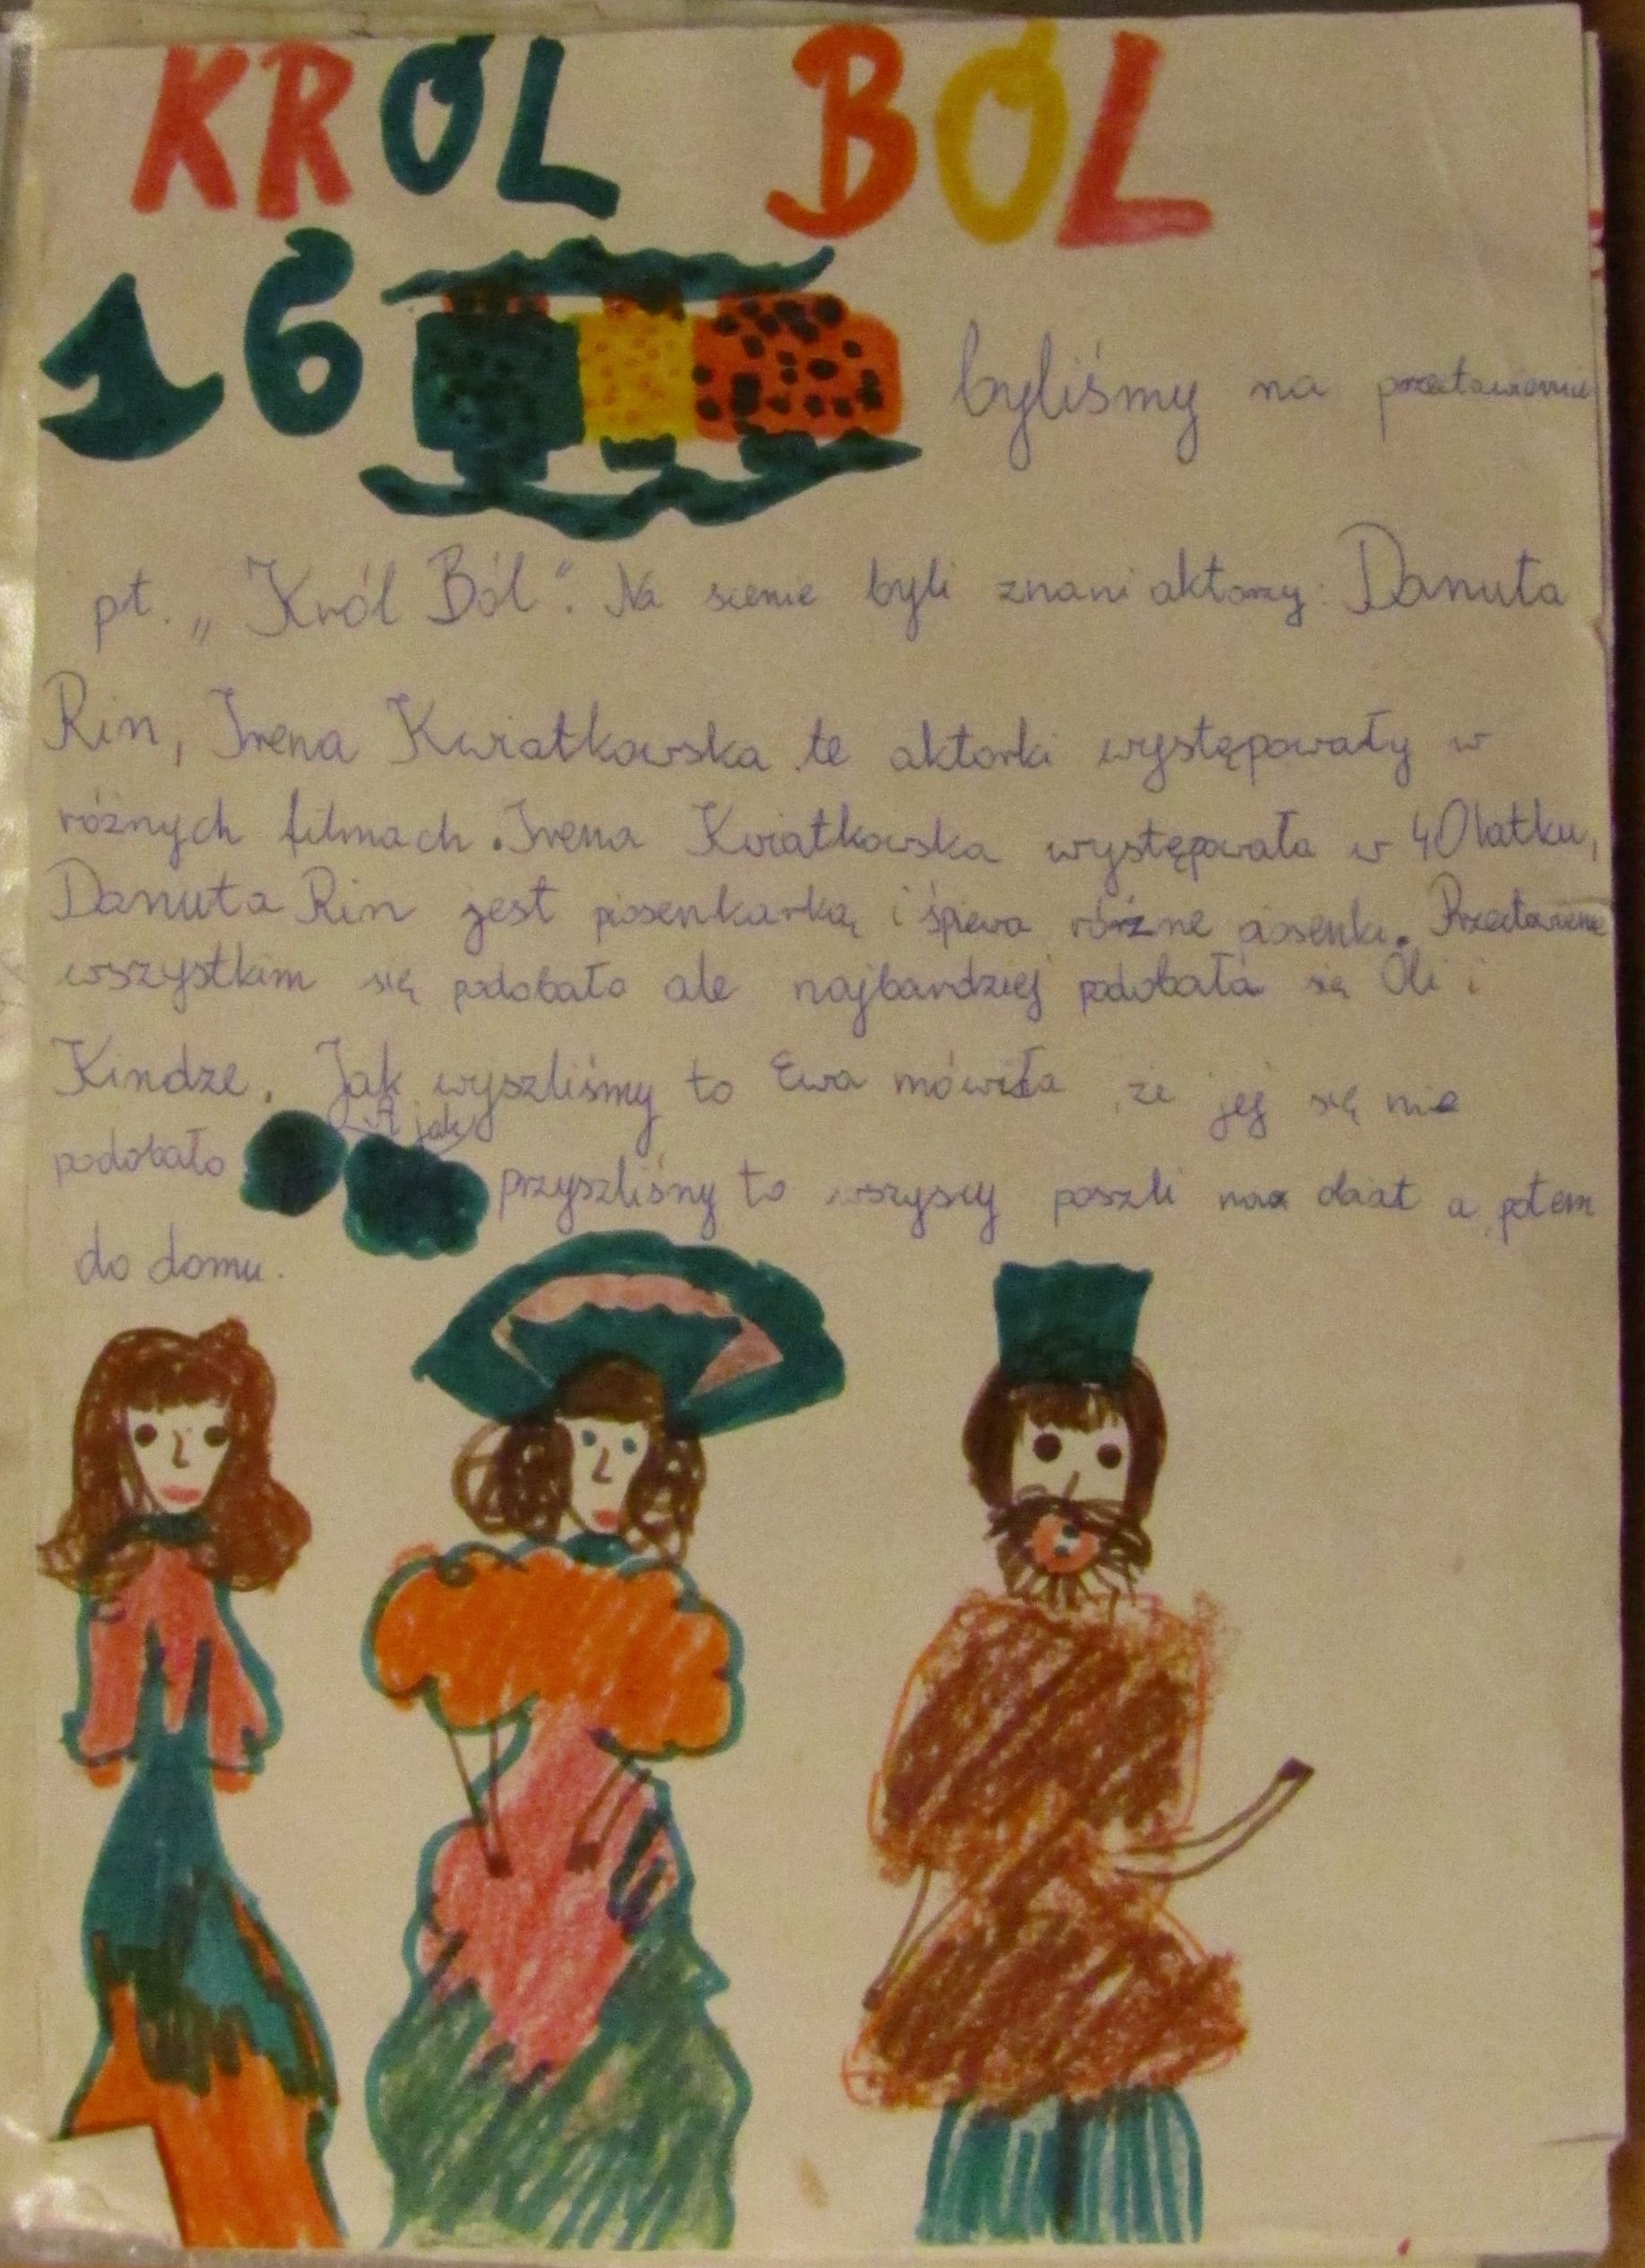 KRÓL BÓL
16 III byliśmy na przectawieniu
pt. „Król Ból". Na scenie byli znani aktorzy: Danuta
Rin, Irena Kwiatkowska te aktorki występowały w
różnych filmach. Irena Kwiatkowska występowała w 40latku,
Danuta Rin jest piosenkarką i śpiewa różne piosenki. Przectawienie
wszystkim się podobało ale najbardziej podobała się Oli i
Kindze. Jak wyszliśmy to Ewa mówiła, że jej się nie
A jak
podobało przyszliśmy to wszyscy poszli na obiat a potem
do domu.